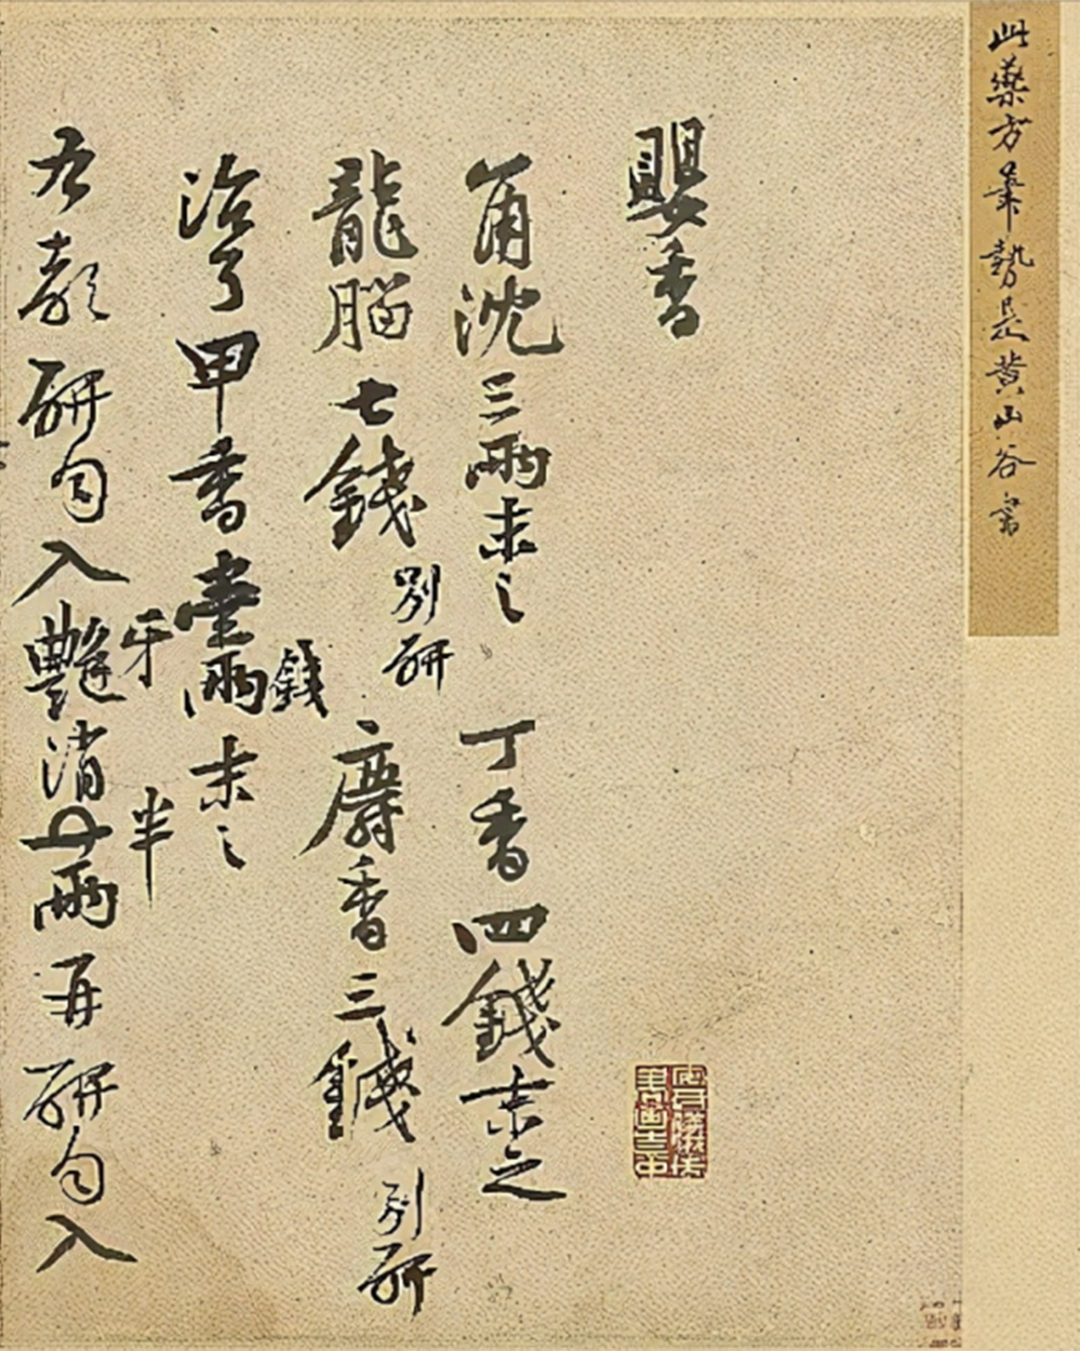 此藥方筆勢是黃山谷書
嬰香
角沈三兩末之 丁香四錢末之
龍腦七錢別研 麝香三錢別研
治了甲香壹兩錢末之
牙 半
右都研勻入艷消兩再研勻入